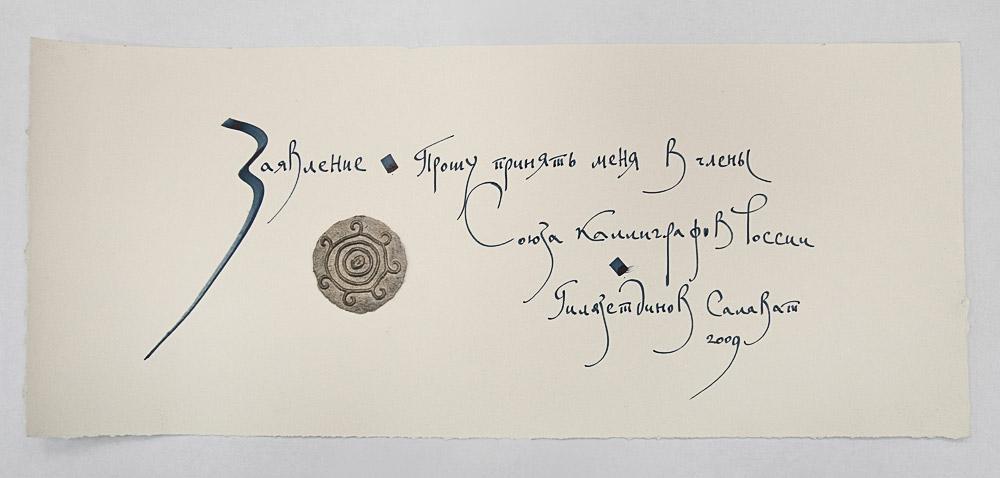 Заявление Прошу принять меня в члены
Союза каллиграфов России
Гилязетдинов Салават
2009